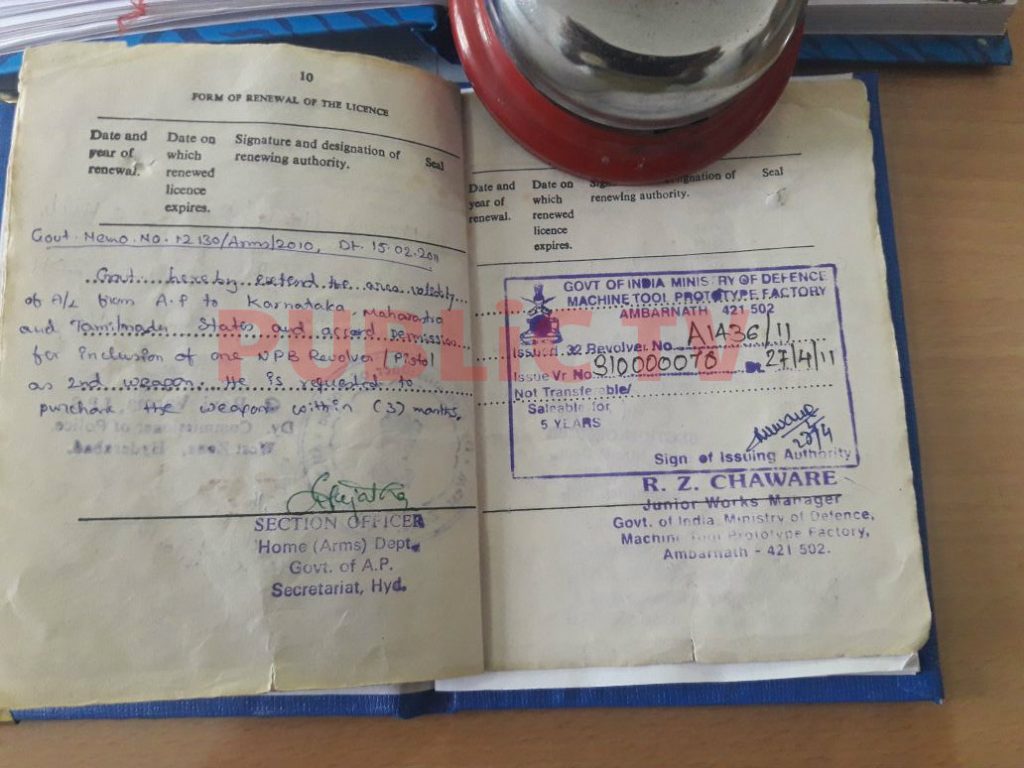 10
FORM OF RENEWAL OF THE LICENCE
Date and year of renewal.
Date on which renewed licence expires.
Signature and designation of renewing authority.
Seal
Govt. Memo. No. 12130/Arms/2010, Dt. 15.02.2011
Govt. hereby extend the area validity
of A/L from A.P to Karnataka, Maharastra
and Tamilnadu States and accord permission
for inclusion of one NPB Revolver / Pistol
as 2nd weapon. He is requested to
purchase the weapon within (3) months.
SECTION OFFICER
Home (Arms) Dept.
Govt. of A.P.
Secretariat, Hyd.
Date and year of renewal.
Date on which renewed licence expires.
renewing authority.
Seal
GOVT OF INDIA MINISTRY OF DEFENCE
MACHINE TOOL PROTOTYPE FACTORY
AMBARNATH 421 502
Issued .32 Revolver No. A1436/11
Issue Vr No. 910000076 27/4/11
Not Transferable/
Saleable for
5 YEARS
Sign. of Issuing Authority
R. Z. CHAWARE
Junior Works Manager
Govt. of India, Ministry of Defence,
Machine Tool Prototype Factory,
Ambarnath - 421 502.
PUBLiC TV